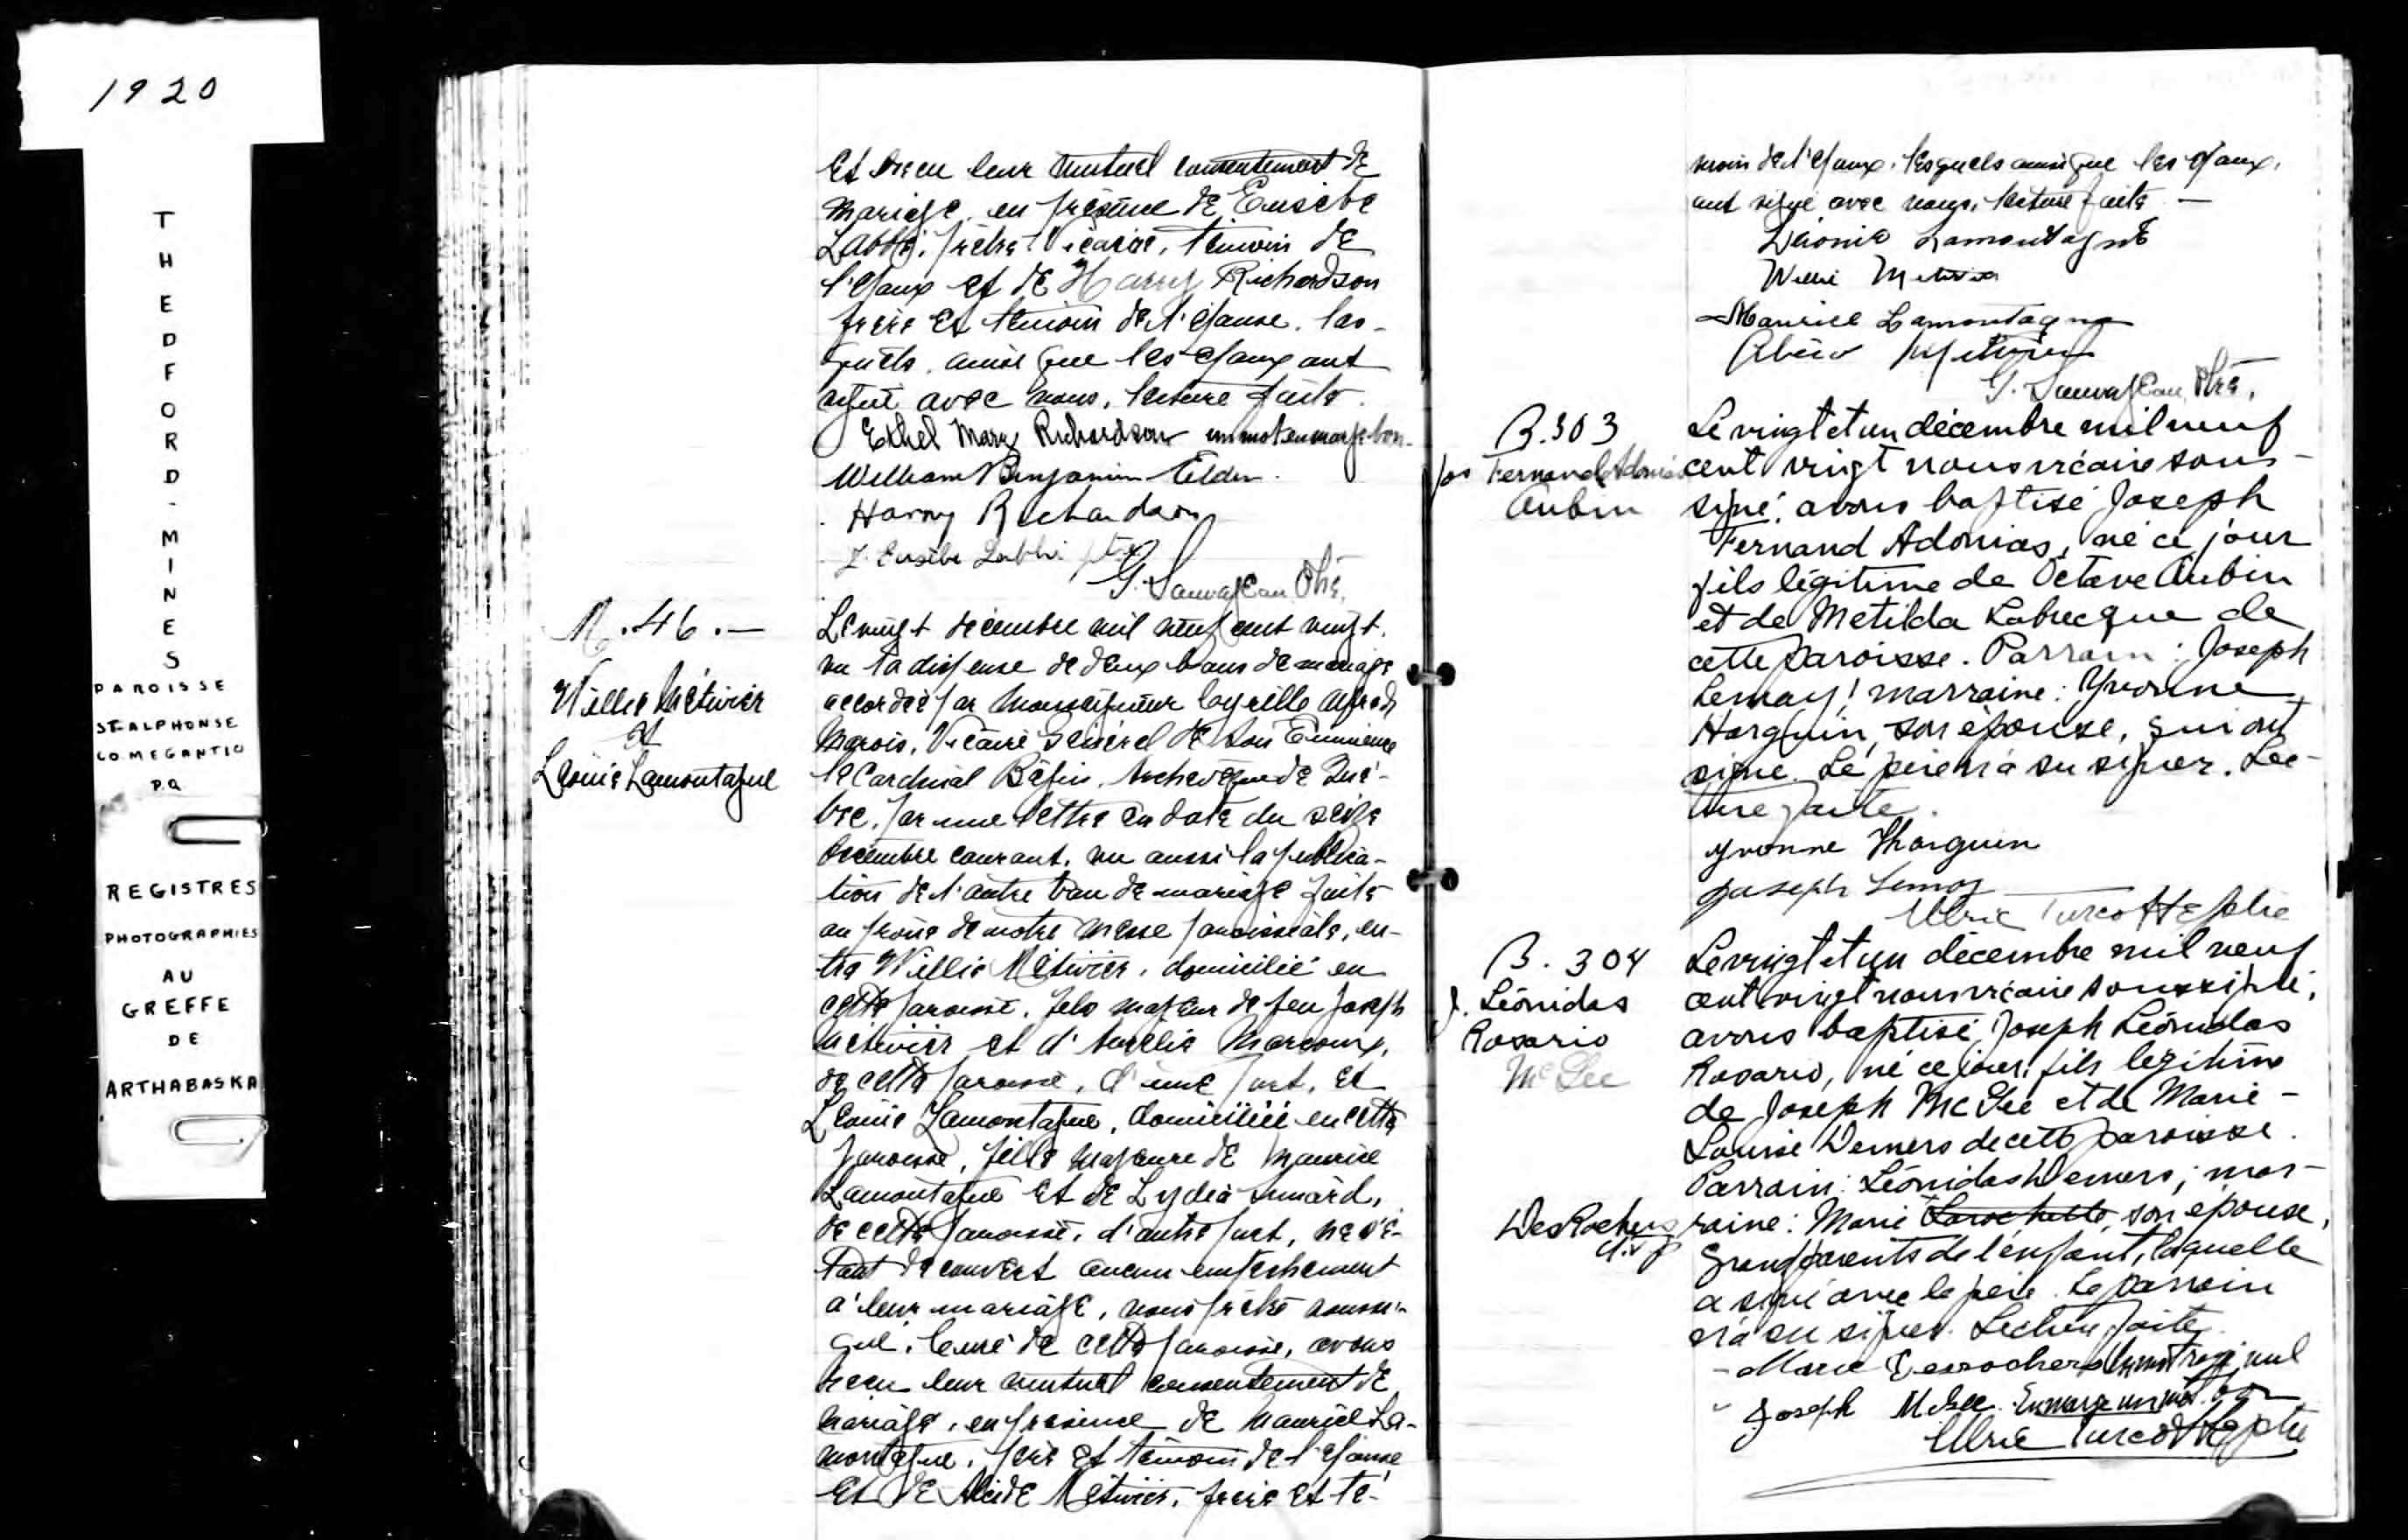 1920
THEDFORD-MINES
PAROISSE
ST-ALPHONSE
CO. MEGANTIC
P.Q
REGISTRES
PHOTOGRAPHIES
AU
GREFFE
DE
ARTHABASKA
et recu leur mutuel consentement de
mariage, en présence de Eusèbe
Labbé, prêtre Vicaire, témoin de
l'époux et de Harry Richardson
frère et témoin de l'épouse, les-
quels, ainsi que les époux ont
signé avec nous, lecture faite.
Ethel Mary Richardson un mot en marge bon.
William Benjamin
Harry Richardson
J. Eusèbe Labbé ptre
G. Sauvageau Ptre.
M. 46. —
Willie Métivier
et
Léonie Lamontagne
Le vingt décembre mil neuf cent vingt,
vu la dispense de deux bans de mariage
accordée par Monseigneur Cyrille Alfred
Marois, Vicaire Général de Son Eminence
le Cardinal Bégin, Archevêque de Qué-
bec, par une lettre en date du seize
décembre courant, vu aussi la publica-
tion de l'autre ban de mariage faite
au prône de notre messe paroissiale, en-
tre Willie Métivier, domicilié en
cette paroisse, fils majeur de feu Joseph
Métivier et d'Aurélie Marcoux,
de cette paroisse, d'une part, et
Léonie Lamontagne, domiciliée en cette
paroisse, fille majeure de Maurice
Lamontagne et de Lydia
de cette paroisse, d'autre part, ne s'é-
tant découvert aucun empêchement
à leur mariage, nous prêtre soussi-
gné, Curé de cette paroisse, avons
recu leur mutuel consentement de
mariage, en présence de Maurice La-
montagne, père et témoin de l'épouse
et de Alcide Métivier, frère et té-
moin de l'époux, lesquels ainsi que les époux,
ont signé avec nous, lecture faite —
Léonie Lamontagne
Willie Métivier
Maurice Lamontagne
Métivier
G. Sauvageau Ptre.
B. 303
Jos Fernand Adonias
Aubin
Le vingt et un décembre mil neuf
cent vingt nous vicaire sous-
signé, avons baptisé Joseph
Fernand Adonias, né ce jour
fils légitime de Octave Aubin
et de Metilda Labrecque de
cette paroisse. Parrain: Joseph
Lemay; marraine: Yvonne
Horguin, son épouse, qui ont
signé. Le père n'a su signer. Lec-
ture faite.
Yvonne Thorguin
Joseph Lemay
Ulric Turcotte ptre
B. 304
J. Léonidas
Rosario
McGee
Le vingt et un décembre mil neuf
cent vingt nous vicaire soussigné,
avons baptisé Joseph Léonidas
Rosario, né ce jour, fils légitime
de Joseph McGee et de Marie-
Louise Demers de cette paroisse.
Parrain: Léonidas Demers; mar-
raine: Marie Larochelle, son épouse,
DesRochers
grands parents de l'enfant, laquelle
a signé avec le père. Le parrain
n'a su signer. Lecture faite.
Marie Desrochers Un mot rayé nul
Joseph McGee. En marge un mot bon
Ulric Turcotte ptre